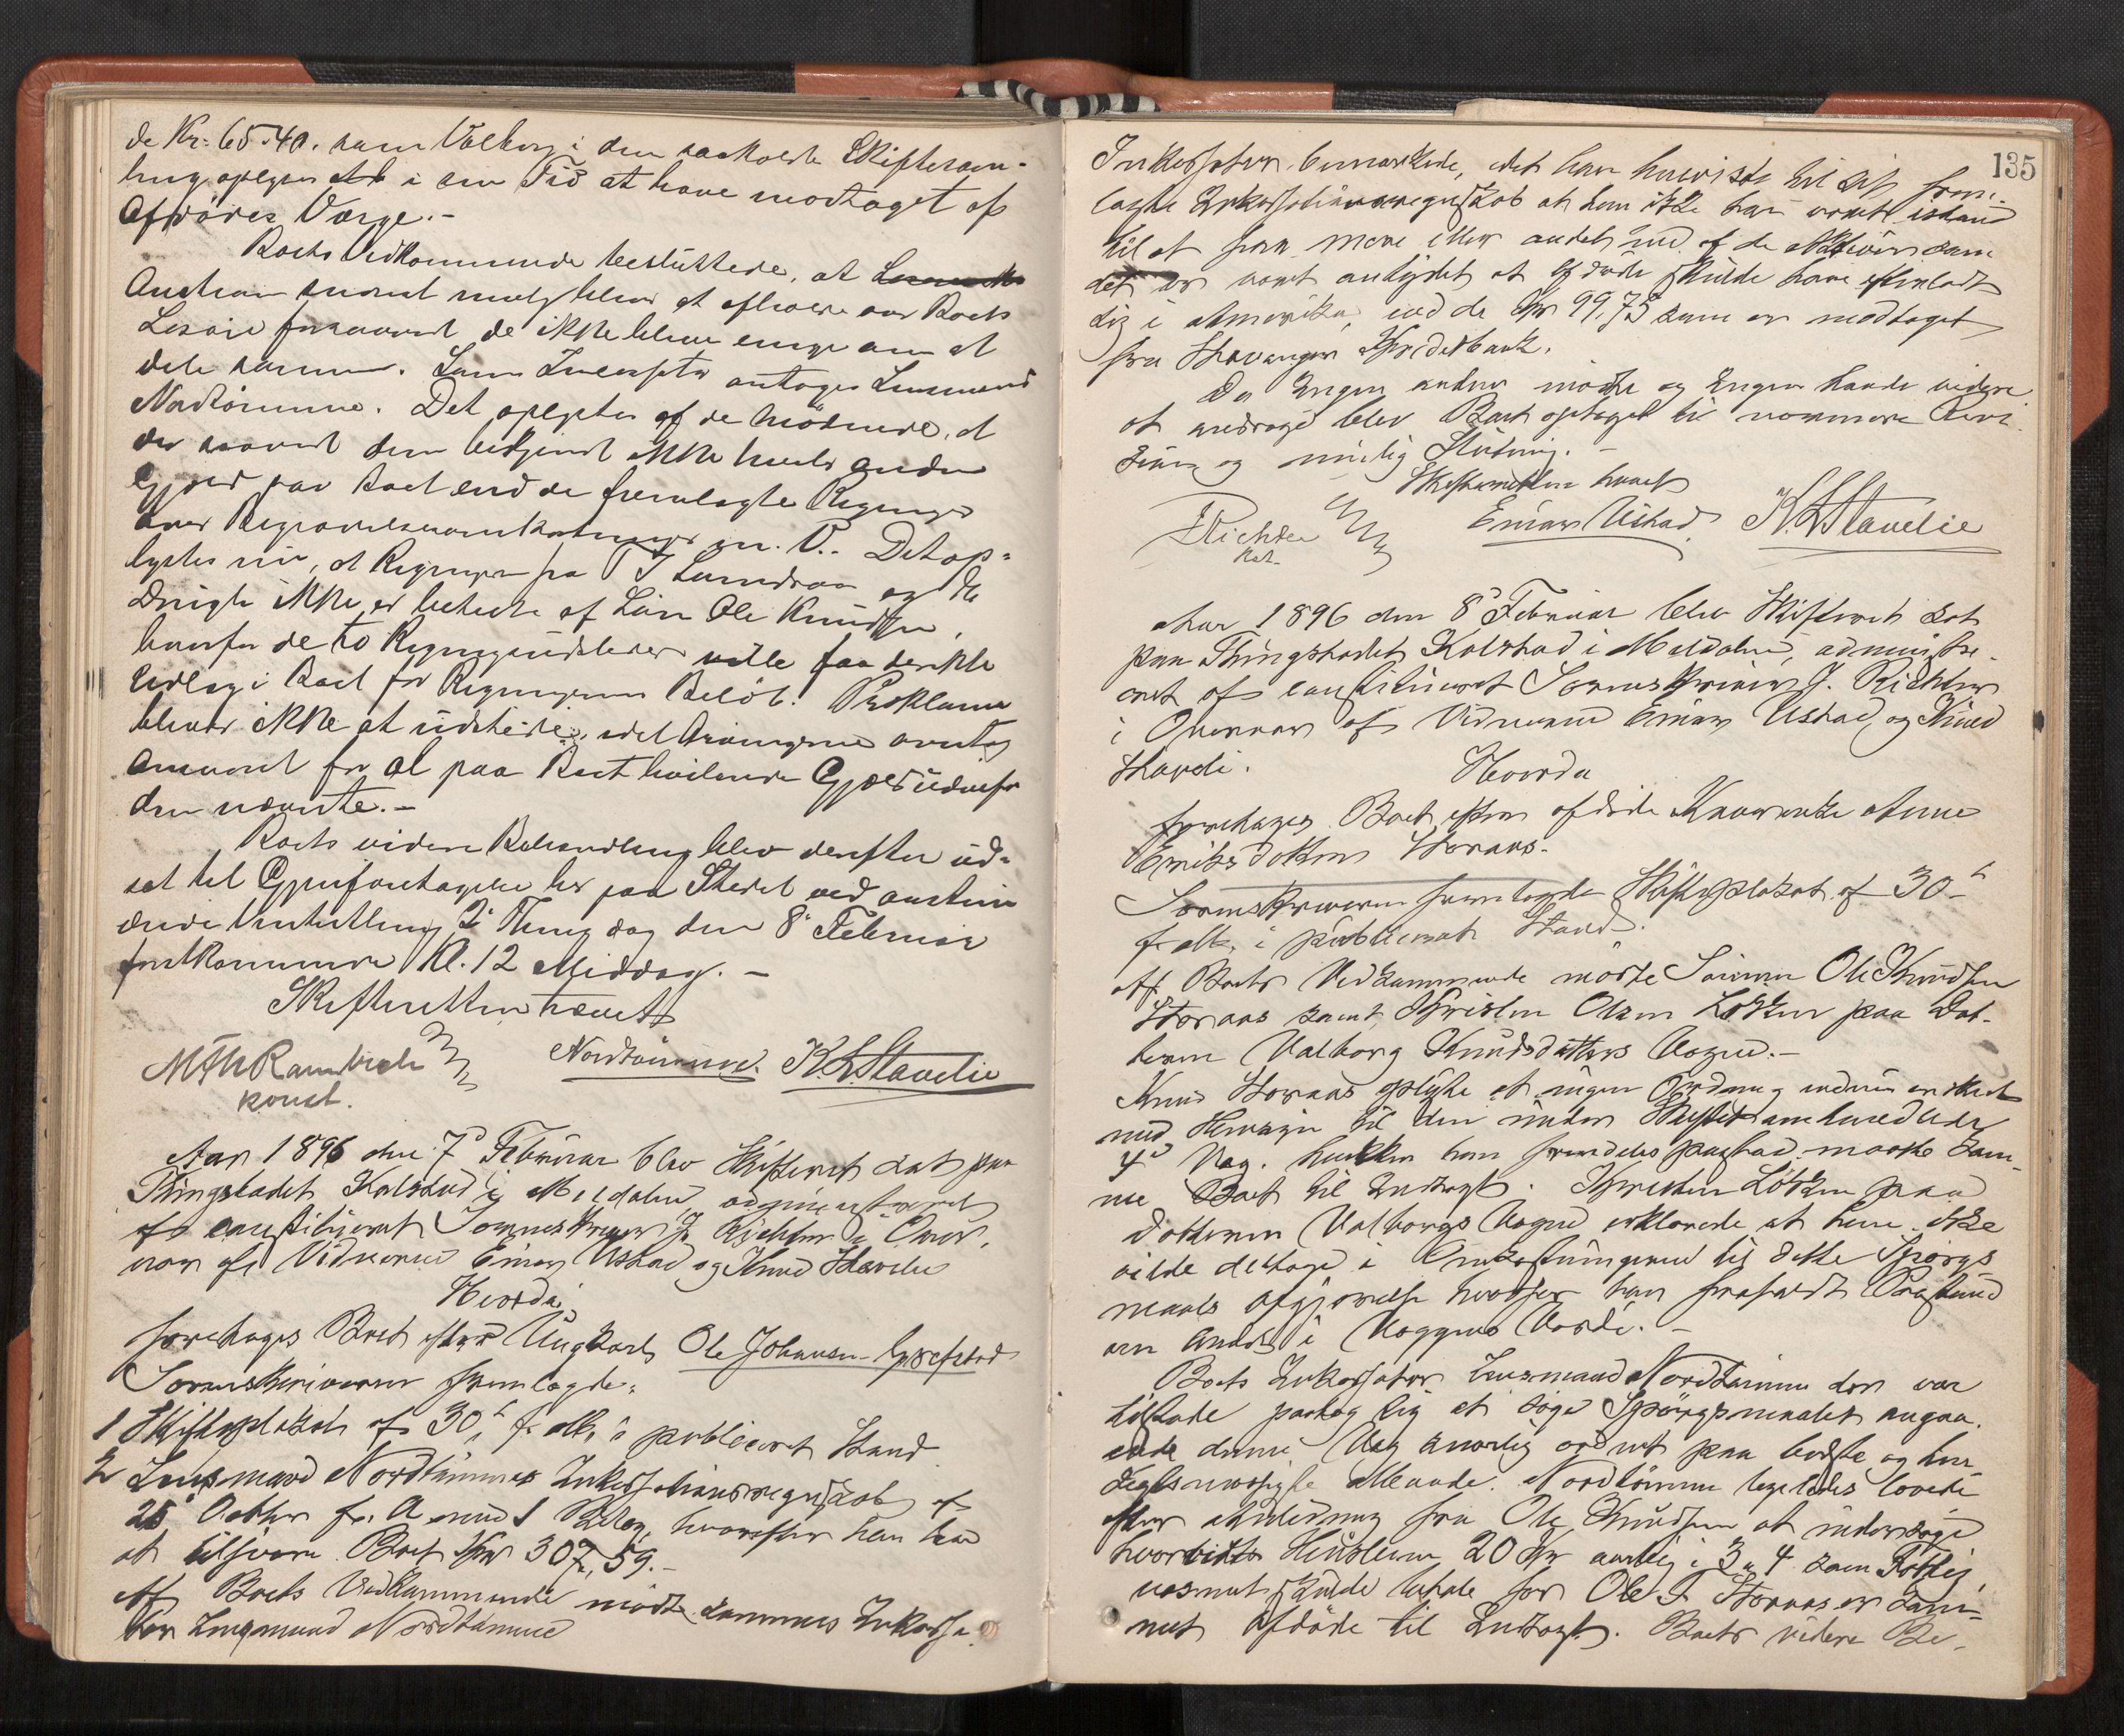 de Kr: 65.40. som Valborg i den saakaldte Skiftesam-
ling oplyses i sin Tid at have modtaget af
Afdödes Værge.-
Boets Vedkommende besluttede, at
Auction snarest mulig bliver at afholde over Boets
Løsøre forsaavidt de ikke bliver enige om at
dele samme. Som Incassator antoges Lensmand
Nordtömme. Det oplystes af de mödende, at
der saavidt dem bekjendt ikke hviler anden
Gjæld paa Boet end de fremlagte Regninger
over Begravelsesomkostninger m. V. Det op-
lystes nu, at Regningen fra
ikke er betalte af Sön Ole Knudsen,
hvorfor de to Regningsudstedere ville faa direkte
Udlæg i Boet for Regningernes Belöb. Proklama
bliver ikke at udstede, idet Arvingerne overtog
Ansvaret for al paa Boet hvilende Gjæld udenfor
den nævnte.-
Boets videre Behandling blev derefter ud-
sat til Gjenforetagelse her paa Stedet ved
2' Thingdag den 8' Februar
førstkommende Kl. 12 Middag. -
Skifteretten hævet
konst.
Nordtömme. K. L. Stavelie
Aar 1896 den 7' Februar blev Skifteret sat paa
Thingstedet Kalstad i Meldalen, administreret
af constitueret Sorenskriver J. Richter i Over-
vær af Vidnerne Einar Ustad og Knud Stavlie
Hvorda
foretoges Boet efter Ungkarl Ole Johansen
Sorenskriveren fremlagde:
1 Skifteplakat af 30' f. Mts. i publiceret Stand
2 Lensmand Nordtömmes Inkassationsregnskab af
25' October f. A. med 1 Bilag, hvorefter han har
at tilsvare Boet Kr 307,59.-
Af Boets Vedkommende mödte sammes Inkassa-
tor Lensmand Nordtömme
135
Inkassator bemærkede, idet han henviste til sit frem-
lagte Inkassationsregnskab at han ikke har været istand
til at faa mere eller andet ind af de Aktiver som
det er vært antydet at Afdöde skulde have efterladt
sig i Amerika, end de Kr 99,73 som er modtaget
fra Stavanger Kreditbank.
Da Ingen anden mödte og Ingen havde videre
at andrage blev Boet optaget til nærmere Revi-
sion og mulig Slutning. -
Skifteretten hævet
J Richter
Kst.
Einar Ustad. K. L. Stavelie
Aar 1896 den 8' Februar blev Skifteret sat
paa Thingstedet Kalstad i Meldalen, administre-
ret af constitueret Sorenskriver J. Richter
i Overvær af Vidnerne Einar Ustad og Knud
Stavli.
Hvorda
foretoges Boet efter afdöde Kaarenke Anne
Eriksdatter Storaas.
Sorenskriveren fremlagde Skifteplakat af 30'
f. Mts. i publiceret Stand.
Af Boets Vedkommende mödte Sönnen Ole Knudsen
Storaas samt Kristen Olsen Løkken paa Dat-
teren Valborg Knudsdatters Vegne.-
Knud Storaas oplyste at ingen Ordning endnu er skeet
med Hensyn til den under Skiftet omhandlede
Væg. hvilken han fremdeles paastod maatte kom-
me Boet til Indtægt. Kristen Løkken paa
Datteren Valborgs Vegne erklærede at hun ikke
vilde deltage i Omkostningerne til dette Spørgs-
maals Afgjørelse hvorfor han frafaldt Paastand
om Andel i Væggens Værdi. -
Boets Inkassator Lensmand Nordtömme der var
tilstede paatog sig at söge Spörgsmaalet angaa-
ende denne Væg snarlig ordnet paa bedste og hen-
sigtsmæssigste Maade. Nordtömme ligeledes lovede
efter Anledning fra Ole Knudsen at undersöge
hvorvidt 20 Kr aarlig i 3 a 4
skulde betale for Ole T. Storaas er kom-
met Afdöde til Indtægt. Boets videre Be-